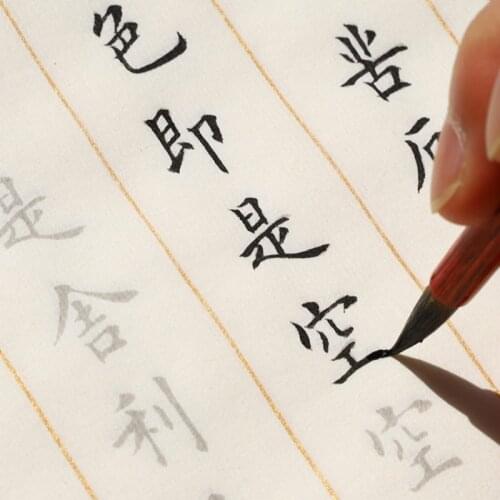 苦
色即是空空
是舎利